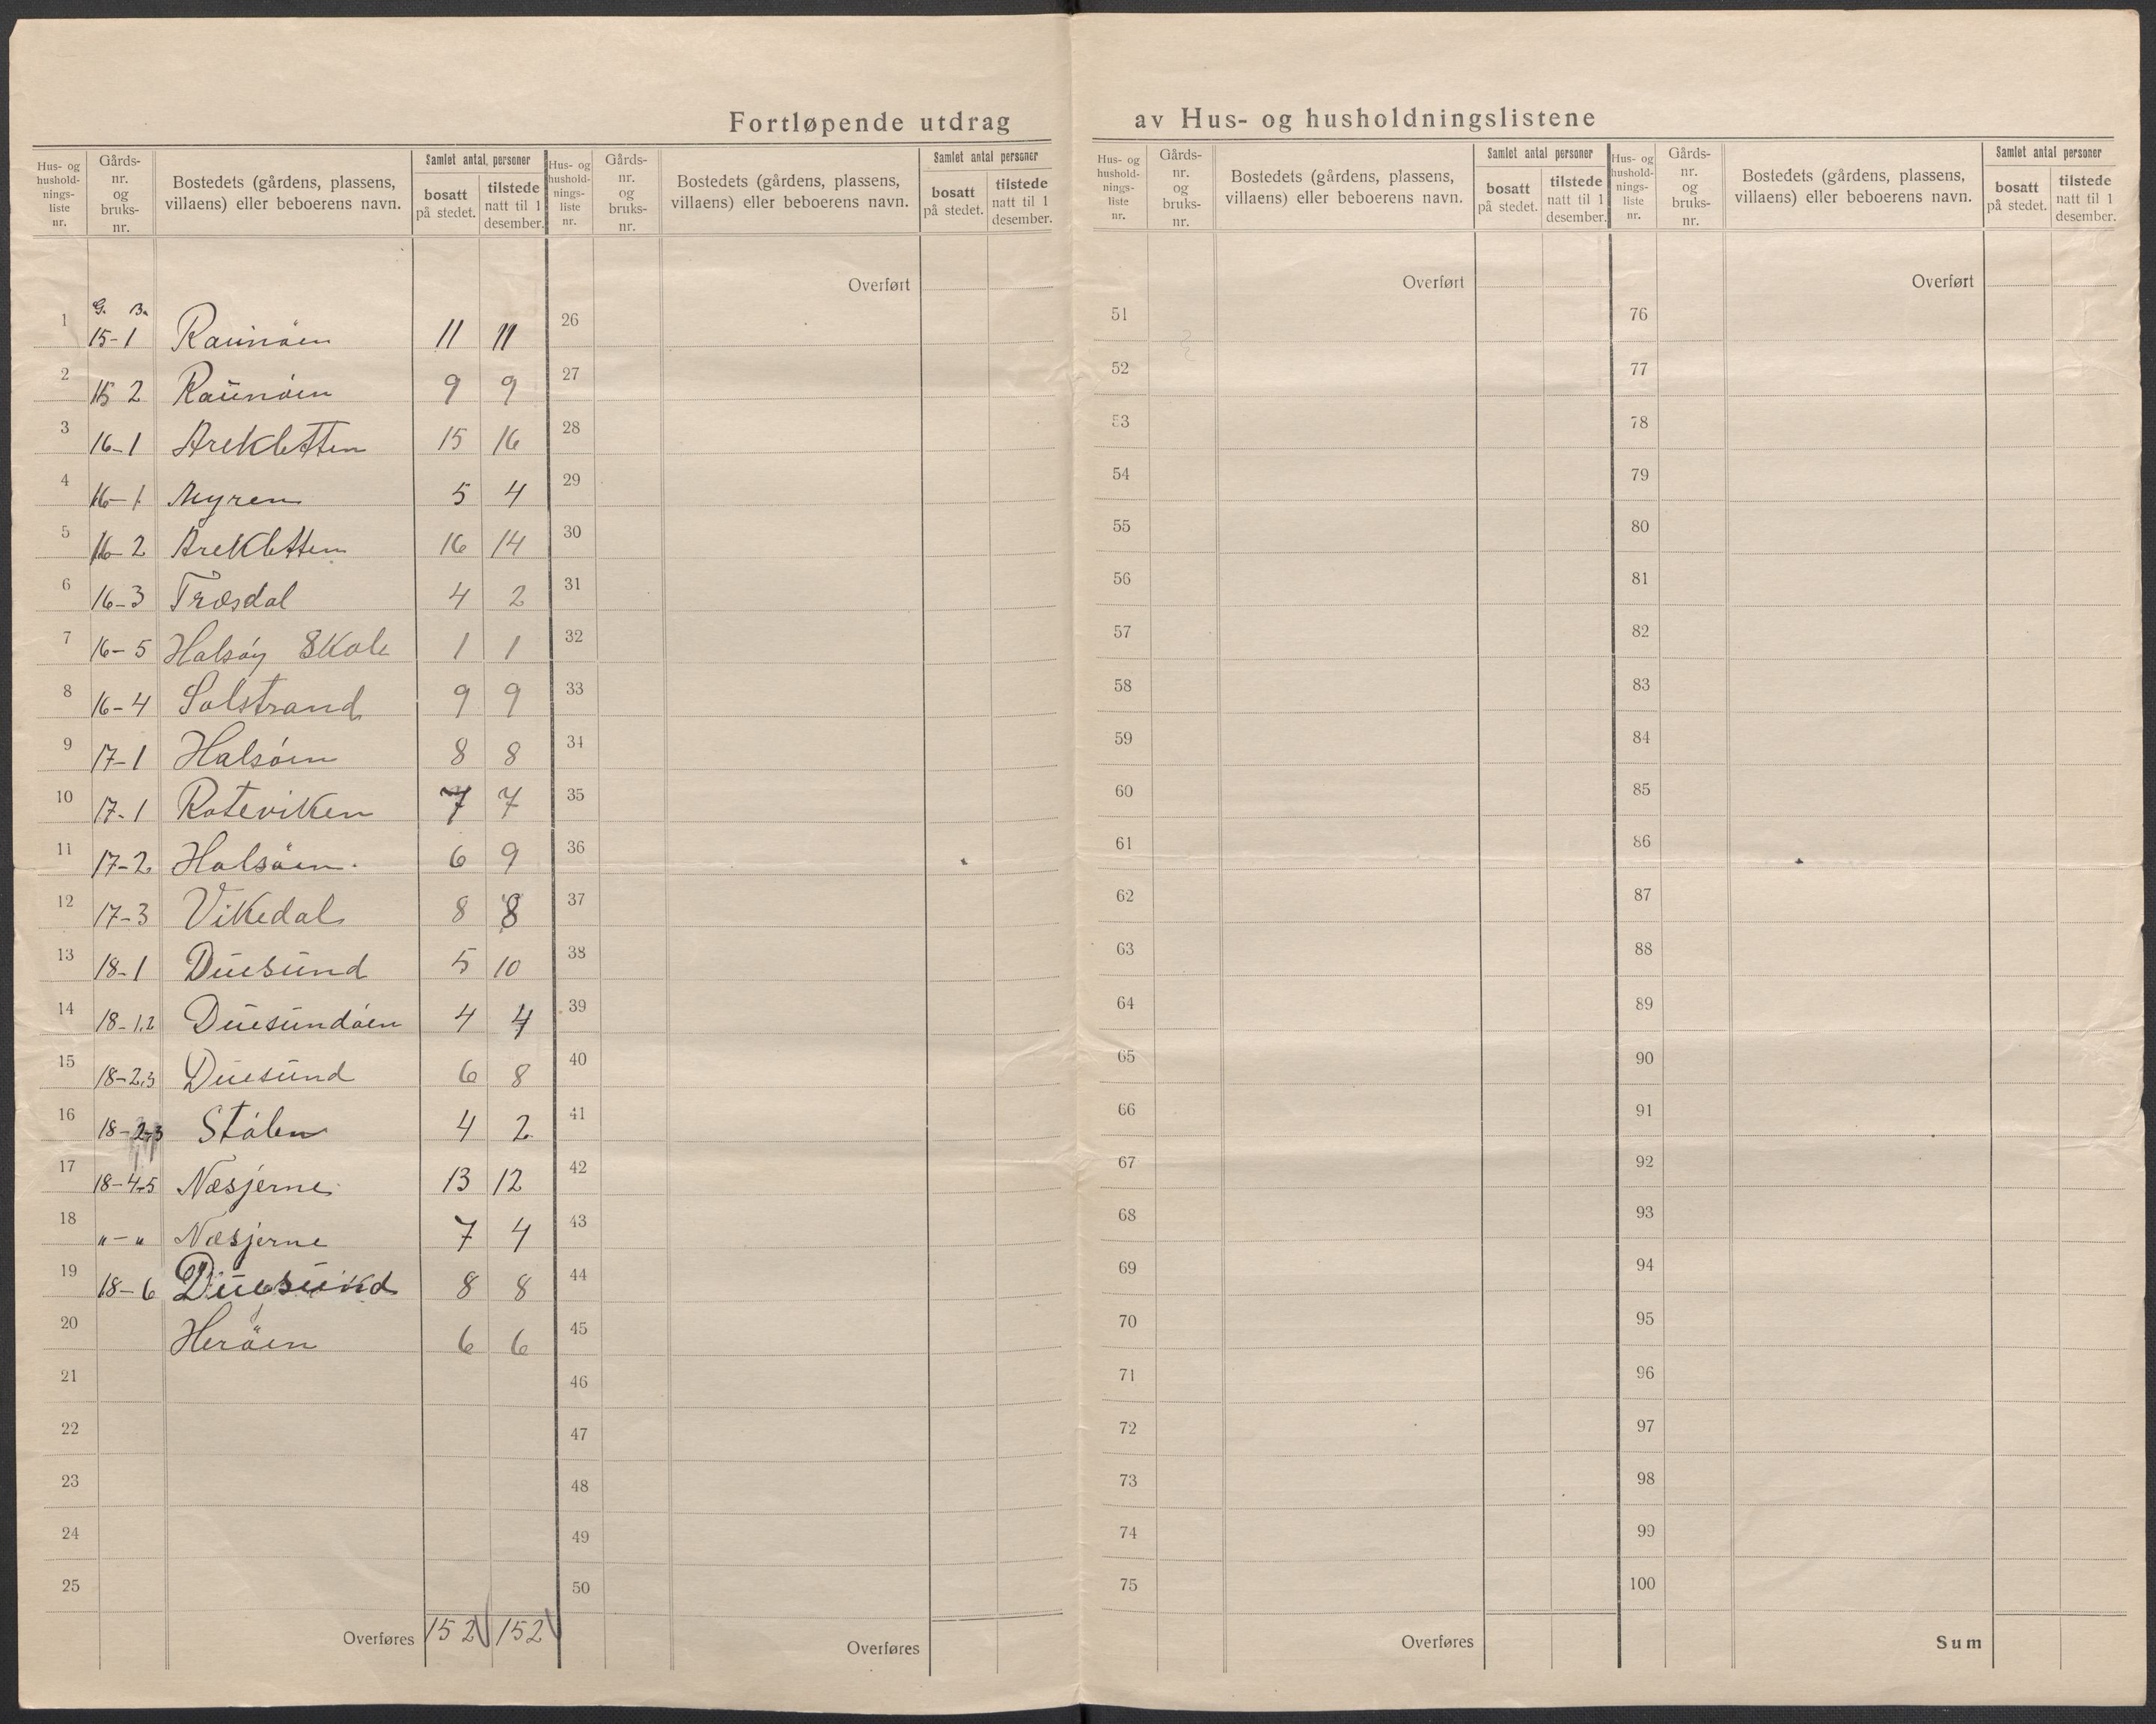 Fortløpende utdrag av Hus- og husholdningslistene
Hus- og hushold-nings-liste nr. Gårds-nr. og bruks-nr. Bostedets (gårdens, plassens, villaens) eller beboerens navn. Samlet antal personer bosatt på stedet. tilstede natt til 1 desember.
Hus- og hushold-nings-liste nr. Gårds-nr. og bruks-nr. Bostedets (gårdens, plassens, villaens) eller beboerens navn. Samlet antal personer bosatt på stedet. tilstede natt til 1 desember.
Hus- og hushold-nings-liste nr. Gårds-nr. og bruks-nr. Bostedets (gårdens, plassens, villaens) eller beboerens navn. Samlet antal personer bosatt på stedet. tilstede natt til 1 desember.
Hus- og hushold-nings-liste nr. Gårds-nr. og bruks-nr. Bostedets (gårdens, plassens, villaens) eller beboerens navn. Samlet antal personer bosatt på stedet. tilstede natt til 1 desember.
G. B.
1 15-1 Raunöen 11 11
2 15 2 Raunöen 9 9
3 16-1 Arekletten 15 16
4 16-1 Myren 5 4
5 16-2 Arekletten 16 14
6 16-3 Træsdal 4 2
7 16-5 Halsöy Skole 1 1
8 16-4 Solstrand 9 9
9 17-1 Halsöen 8 8
10 17-1 Roteviken 7 7
11 17-2 Halsöen. 6 9
12 17-3 Vikedal 8 8
13 18-1 Duesund 5 10
14 18-1,2 Duesundöen 4 4
15 18-2,3 Duesund 6 8
16 18-2-3 Stölen 4 2
17 18-4-5 Næsjerne 13 12
18 "-" Næsjerne 7 4
19 18-6 Duesund 8 8
20 Heröen 6 6
21
22
23
24
25
Overføres 152 152
Overført
26
27
28
29
30
31
32
33
34
35
36
37
38
39
40
41
42
43
44
45
46
47
48
49
50
Overføres
Overført
51
52
53
54
55
56
57
58
59
60
61
62
63
64
65
66
67
68
69
70
71
72
73
74
75
Overføres
Overført
76
77
78
79
80
81
82
83
84
85
86
87
88
89
90
91
92
93
94
95
96
97
98
99
100
Sum